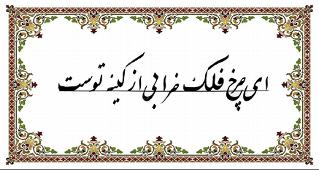 ای چرخ فلک خرابی از کینه توست